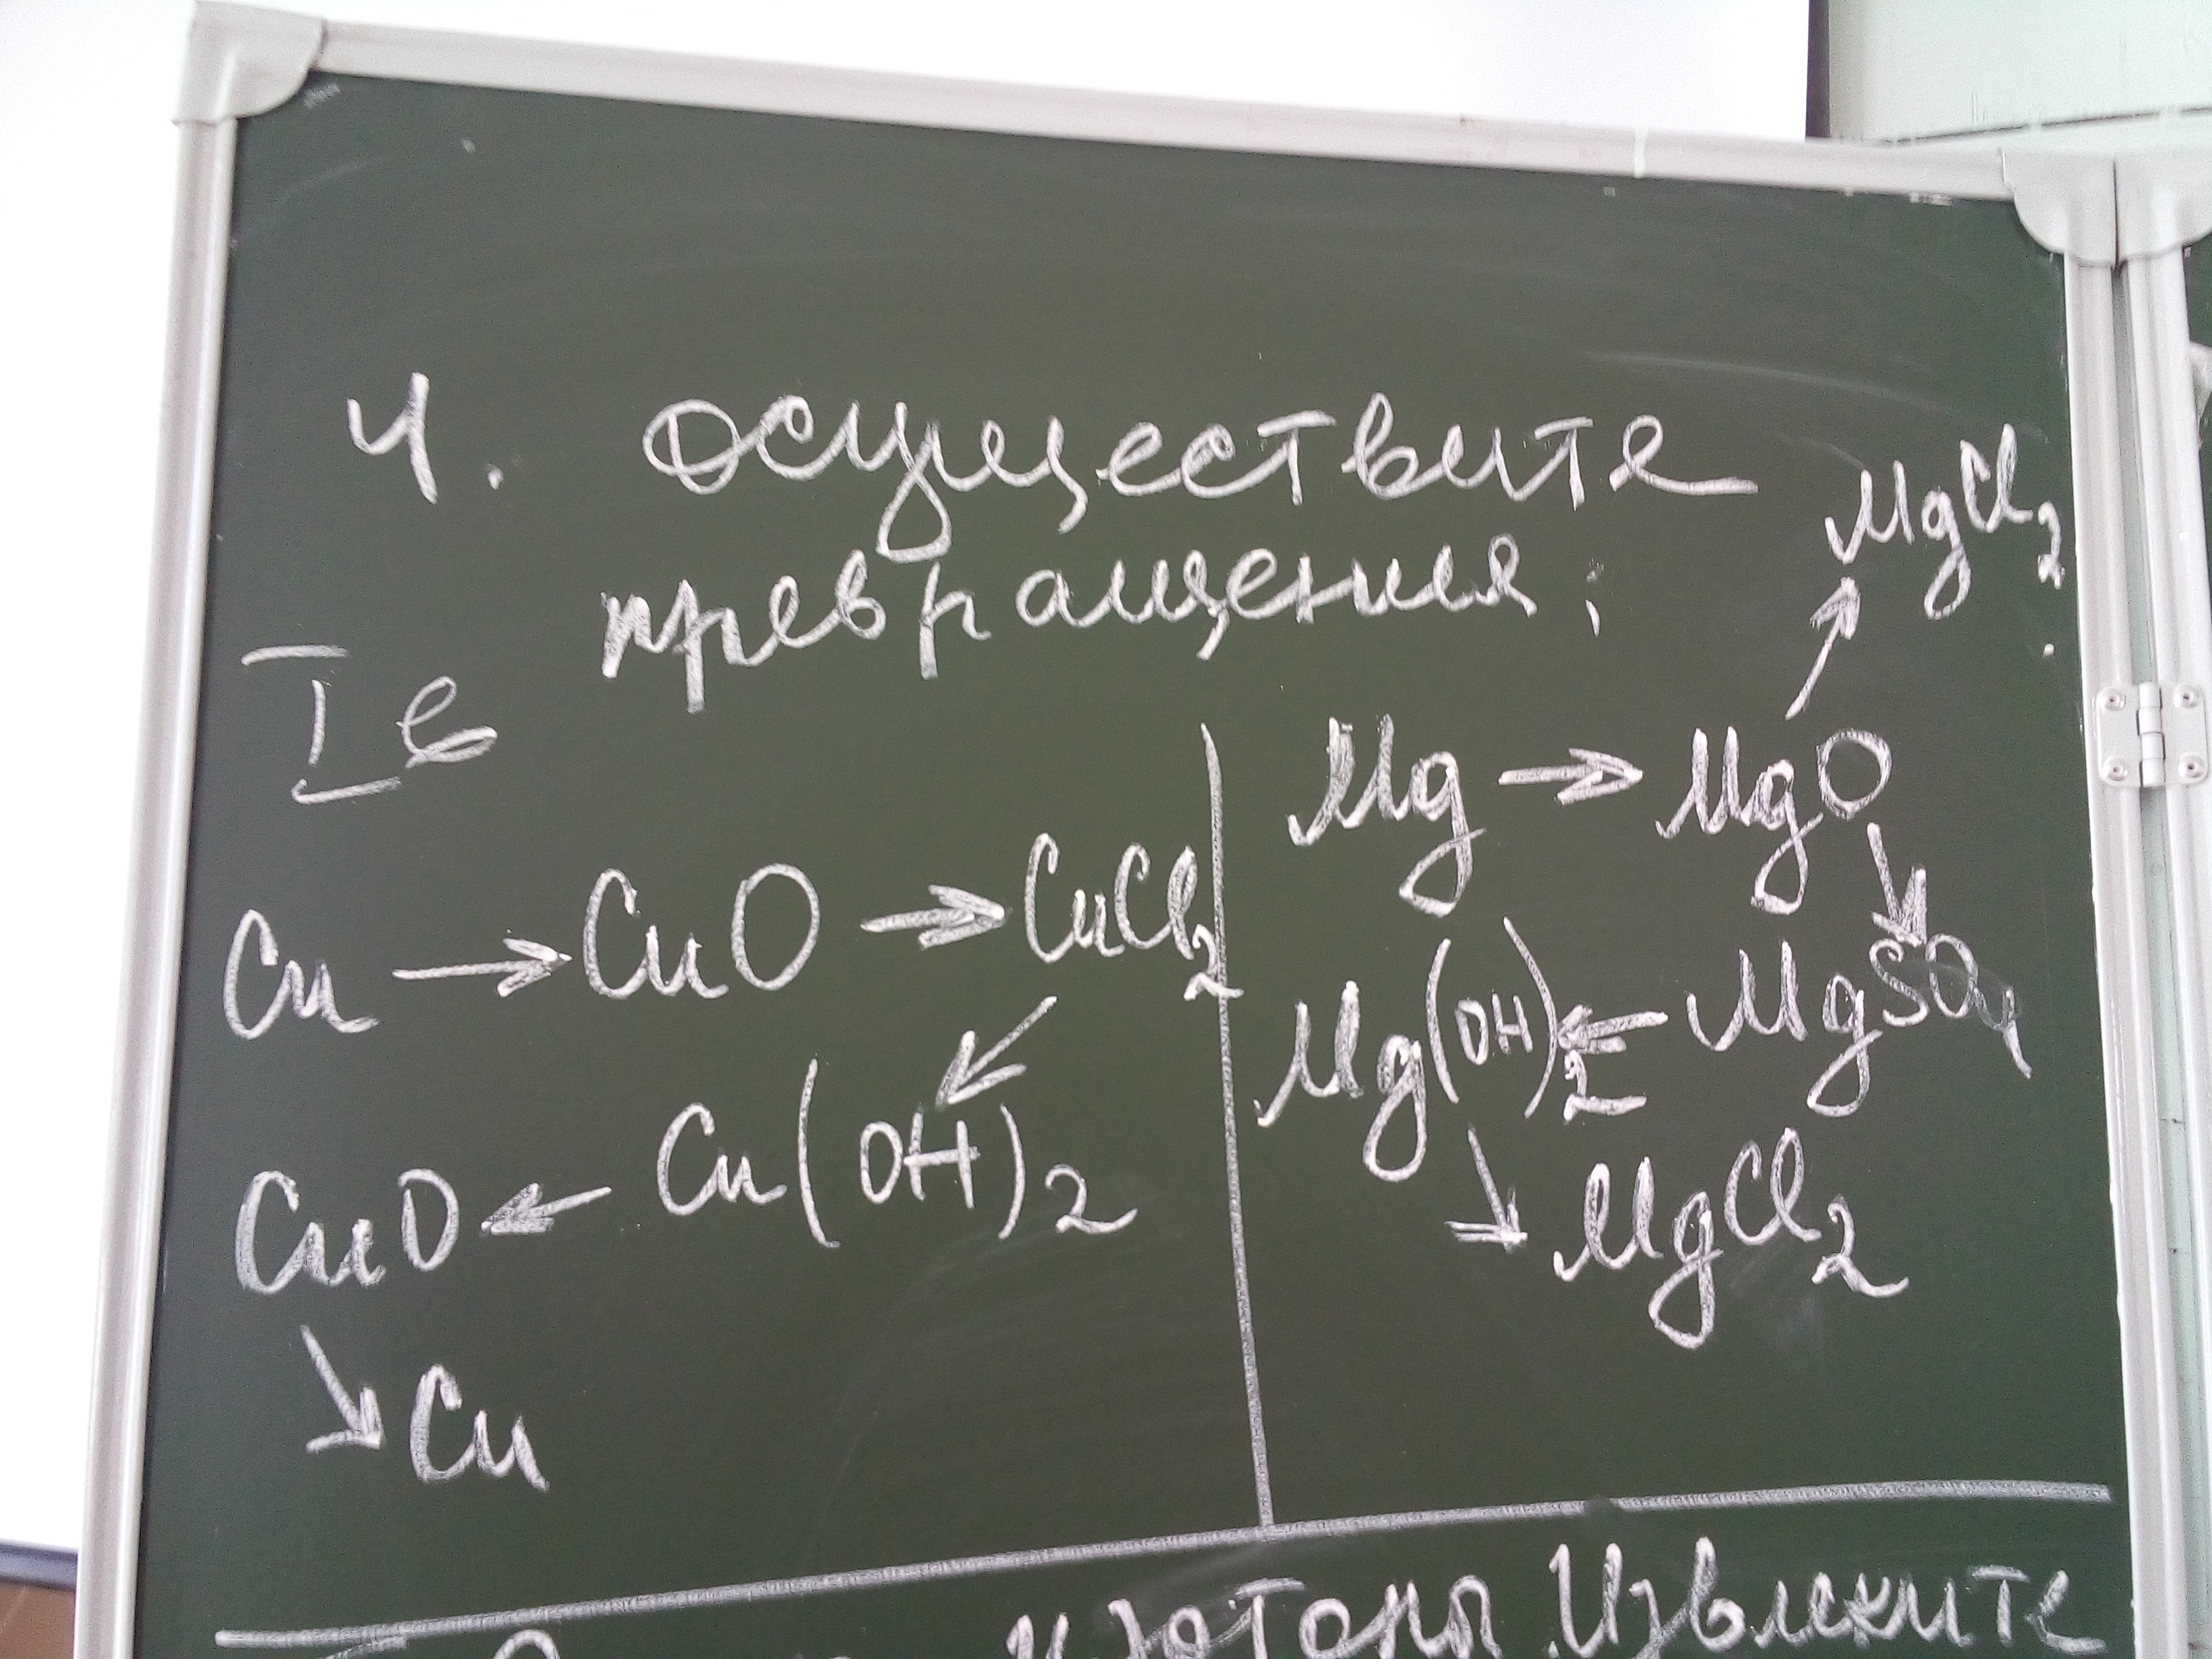 4. осуществите
превращения:
I в
Cu → CuO → CuCl₂
↙
CuO ← Cu(OH)₂
↘ Cu
MgCl₂
↗
Mg → MgO
↓
Mg(OH)₂ ← MgSO₄
↘ MgCl₂
изотопы. Извлеките